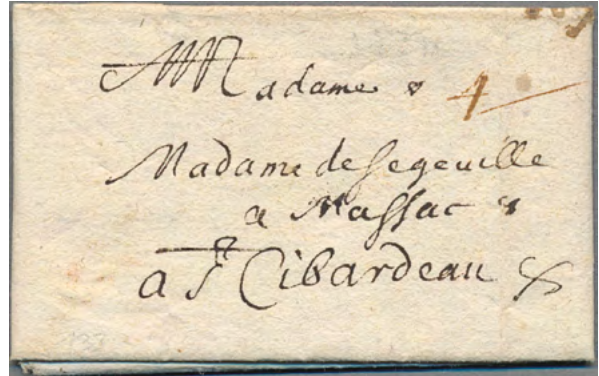 Madame 4
Madame de Segeville
a Massac
a St Cibardeau